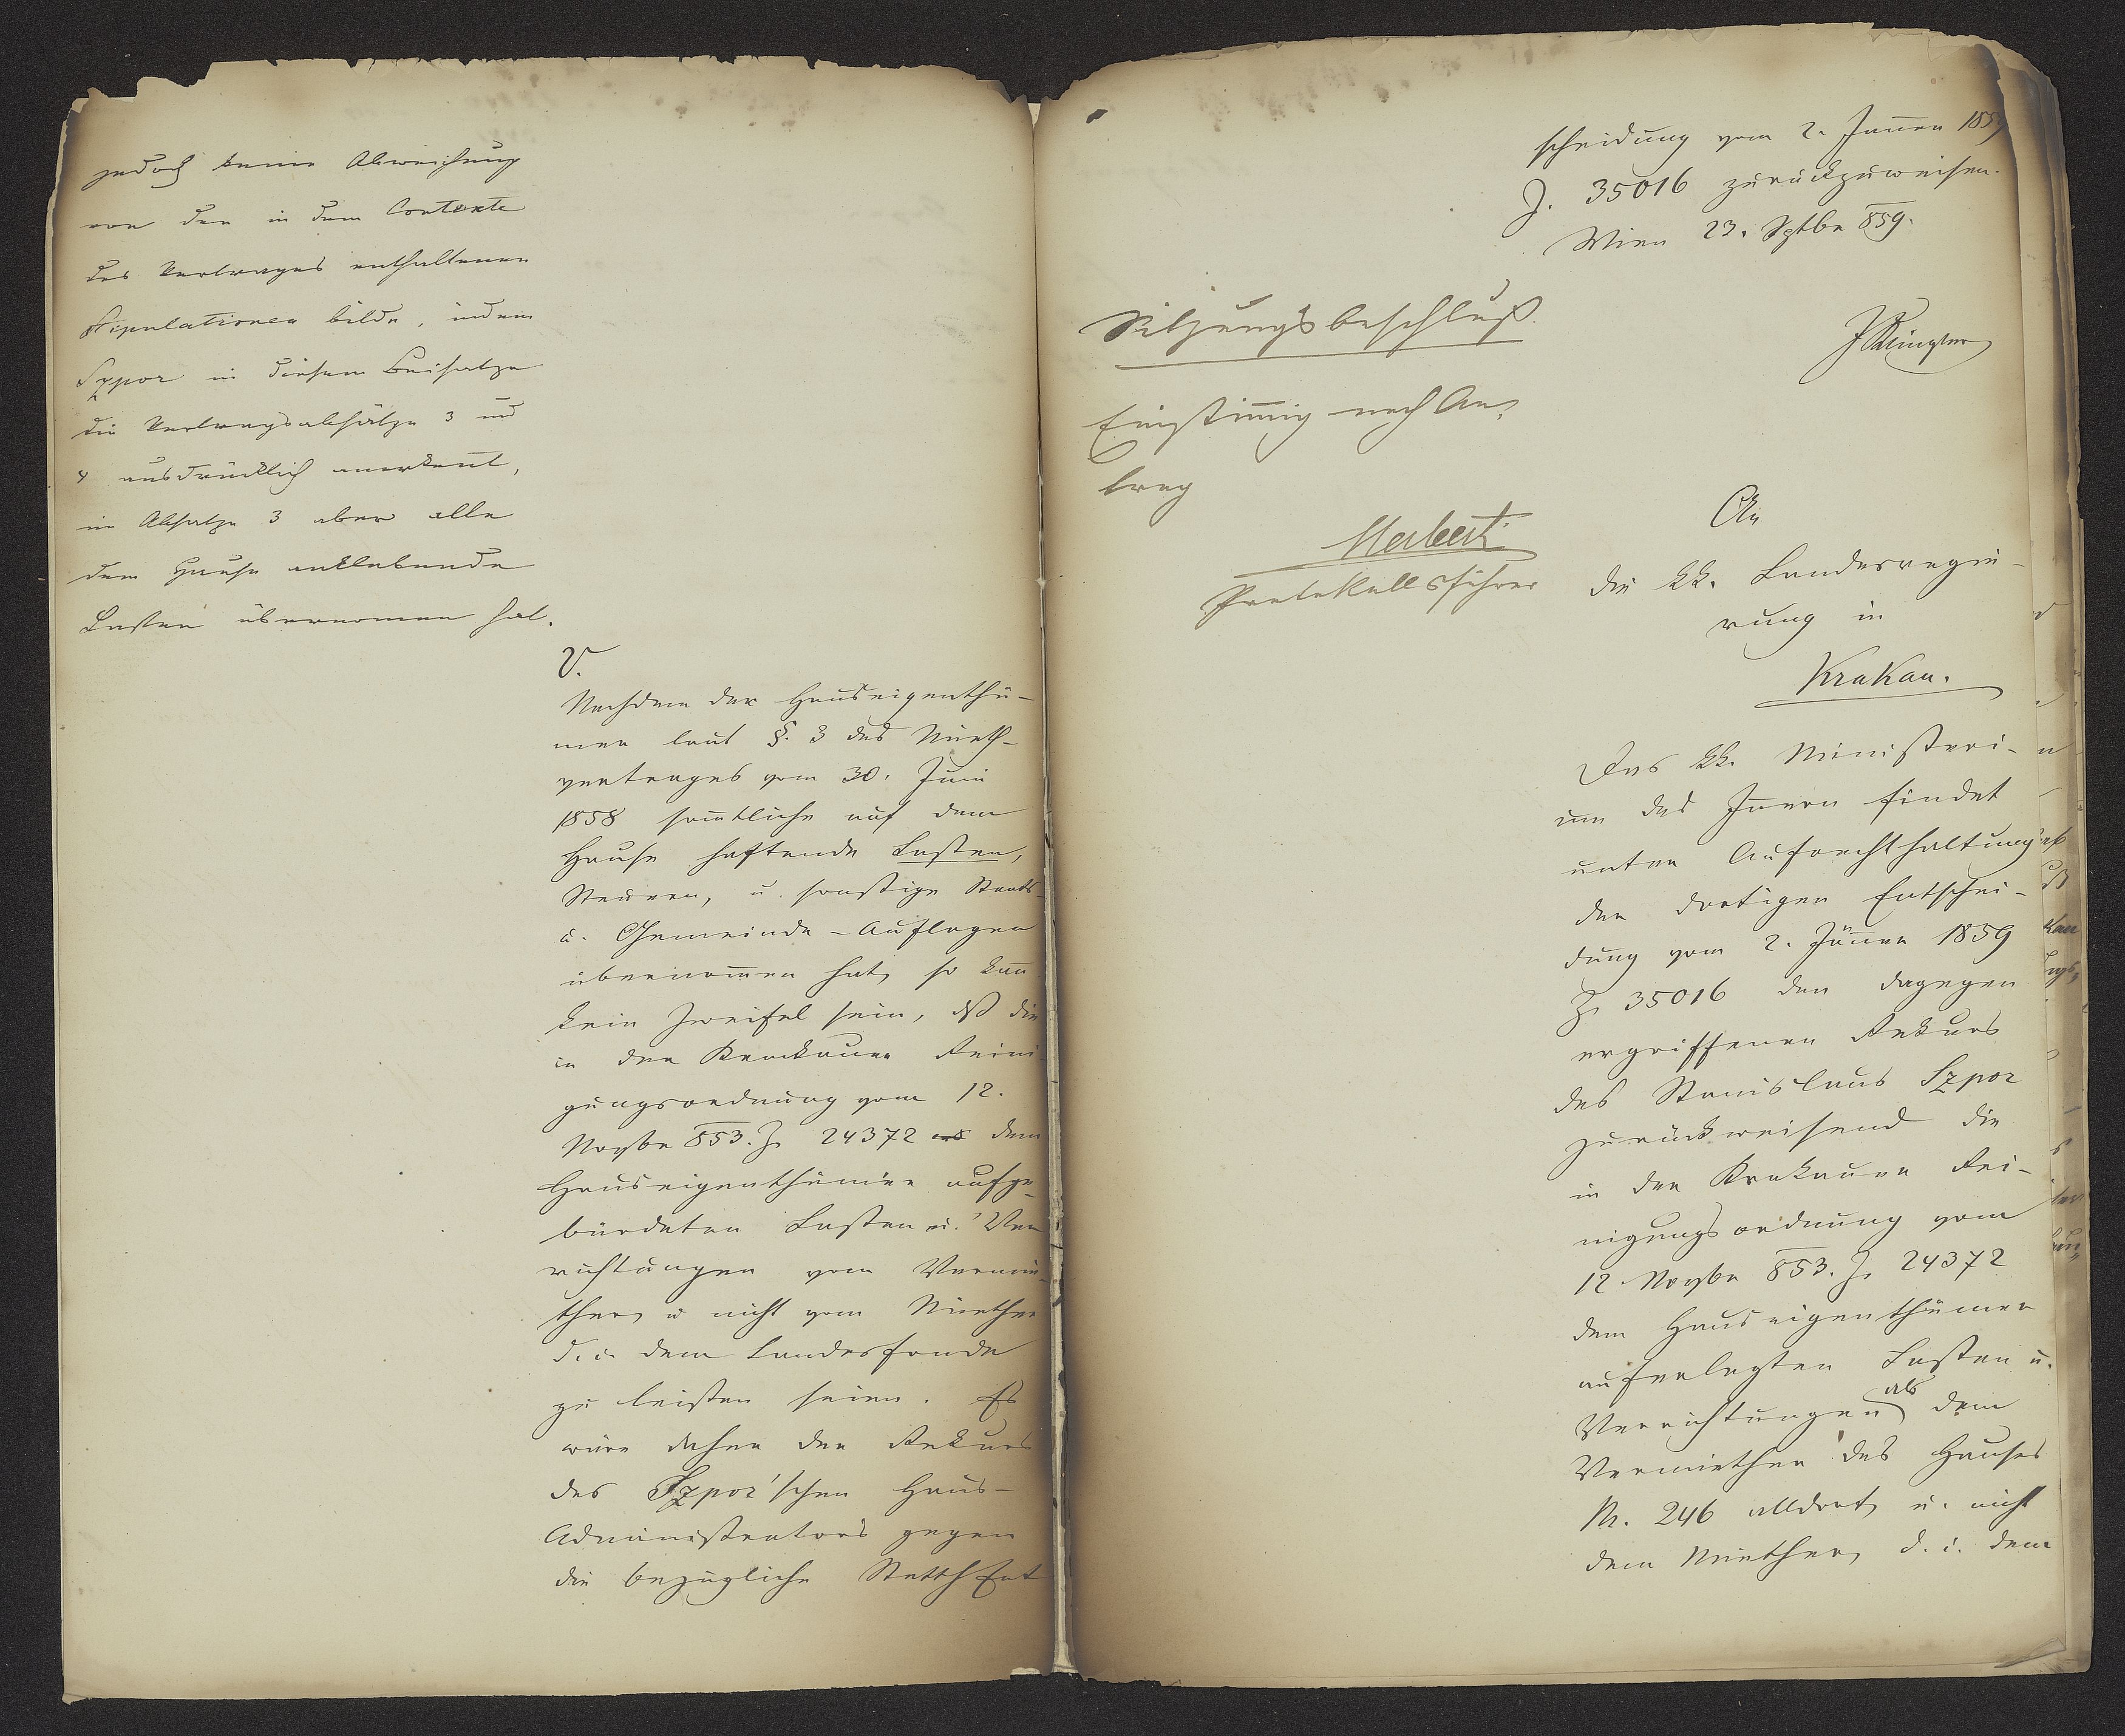 jedoch keine Abweichung
von den in dem Contexte
des Vertrages enthaltenen
Stipulationen bilde, indem
Szpor in diesem Beisatze
die Vertragsabsätze 3 und
4 ausdrücklich anerkeñt,
im Absatze 3 aber alle
dem Hause anklebende
Lasten übernomen hat.
V.
Nachdem der Hauseigenthü-
mer laut §. 3 des Mieth-
vertrages vom 30. Juni
1858 sam̃tliche auf dem
Hause haftende Lasten,
Steuern, u. sonstige Staats-
u. Gemeinde-Auflagen
übernom̃en hat, so kañ
kein Zweifel sein, dß die
in der Krakauer Reini
gungsordnung vom 12.
Novbr 853. Z. 24372 dem
Hauseigenthümer aufge-
bürdeten Lasten u. Ver
richtungen vom Vermie-
ther, u nicht vom Miether
d. i. dem Landesfonde
zu leisten seien. Es
wäre daher der Rekurs
des Szpor'schen Haus-
Administrators gegen
die bezügliche Statth Ent
scheidung vom 2. Jäner 1859
Z. 35016 zurückzuweisen.
Wien 23. Sptbr 859.
Sitzungsbeschluß.
Einstim̃ig nach An,
trag
Protokollsführer
An
die kk. Landesregie-
rung in
Krakau.
Das kk. Ministeri-
um des Iñern findet
unter Aufrechthaltung
der dortigen Entschei-
dung vom 2. Jäñer 1859
Z. 35016 den dagegen
ergriffenen Rekurs
des Stanislaus Szpor
zurückweisend die
in der Krakauer Rei-
nigungsordnung vom
12. Novbr 853. Z. 24372
dem Hauseigenthümer
auferlegten Lasten u.
Verrichtungen als dem
Vermiether des Hauses
Nr. 246 alldort, u. nicht
dem Miether, d. i. dem